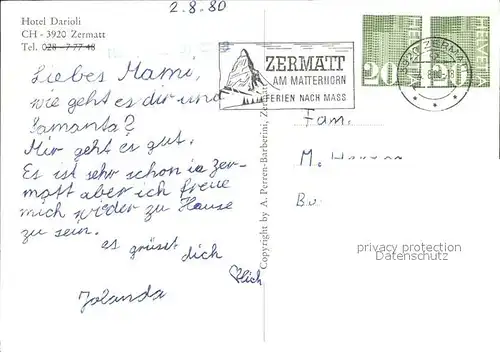 2.8.80
Hotel Darioli
CH - 3920 Zermatt
Tel. 028 - 7 77 48
Liebes Mami,
wie geht es dir und
Samanta?
Mir geht es gut.
Es ist sehr schön in Zer-
matt aber ich freue
mich wieder zu Hause
zu sein.
es grüsst dich
♥lich
Jolanda
Copyright by A. Perren-Barberini, Zermatt
ZERMATT
AM MATTERHORN
FERIEN NACH MASS
20
HELVETIA
3920 ZERMATT
Fam.
M.
privacy protection
Datenschutz